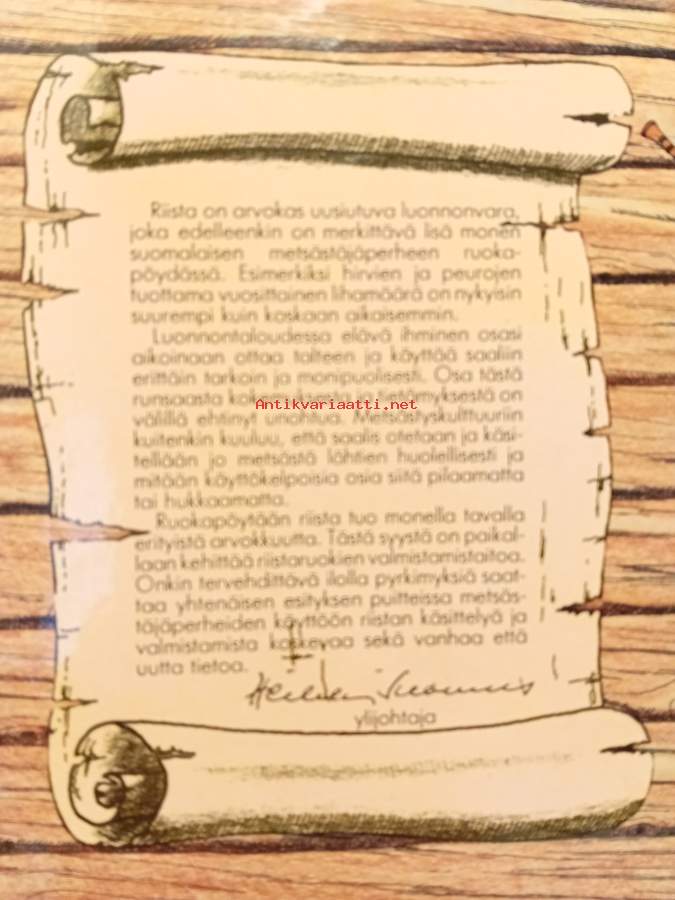 Riista on arvokas uusiutuva luonnonvara,
joka edelleenkin on merkittävä lisä monen
suomalaisen metsästäjäperheen ruoka-
pöydässä. Esimerkiksi hirvien ja peurojen
tuottama vuosittainen lihamäärä on nykyisin
suurempi kuin koskaan aikaisemmin.
Luonnontaloudessa elävä ihminen osasi
aikoinaan ottaa talteen ja käyttää saaliin
erittäin tarkoin ja monipuolisesti. Osa tästä
runsaasta tietämyksestä on
Antikvariaatti.net
välillä ehtinyt unohtua. Metsästyskulttuuriin
kuitenkin kuuluu, että saalis otetaan ja käsi-
tellään jo metsästä lähtien huolellisesti ja
mitään käyttökelpoisia osia siitä pilaamatta
tai hukkaamatta.
Ruokapöytään riista tuo monella tavalla
erityistä arvokkuutta. Tästä syystä on paikal-
laan kehittää riistaruokien valmistamistaitoa.
Onkin tervehdittävä ilolla pyrkimyksiä saat-
taa yhtenäisen esityksen puitteissa metsäs-
täjäperheiden käyttöön riistan käsittelyä ja
valmistamista koskevaa sekä vanhaa että
uutta tietoa.
ylijohtaja